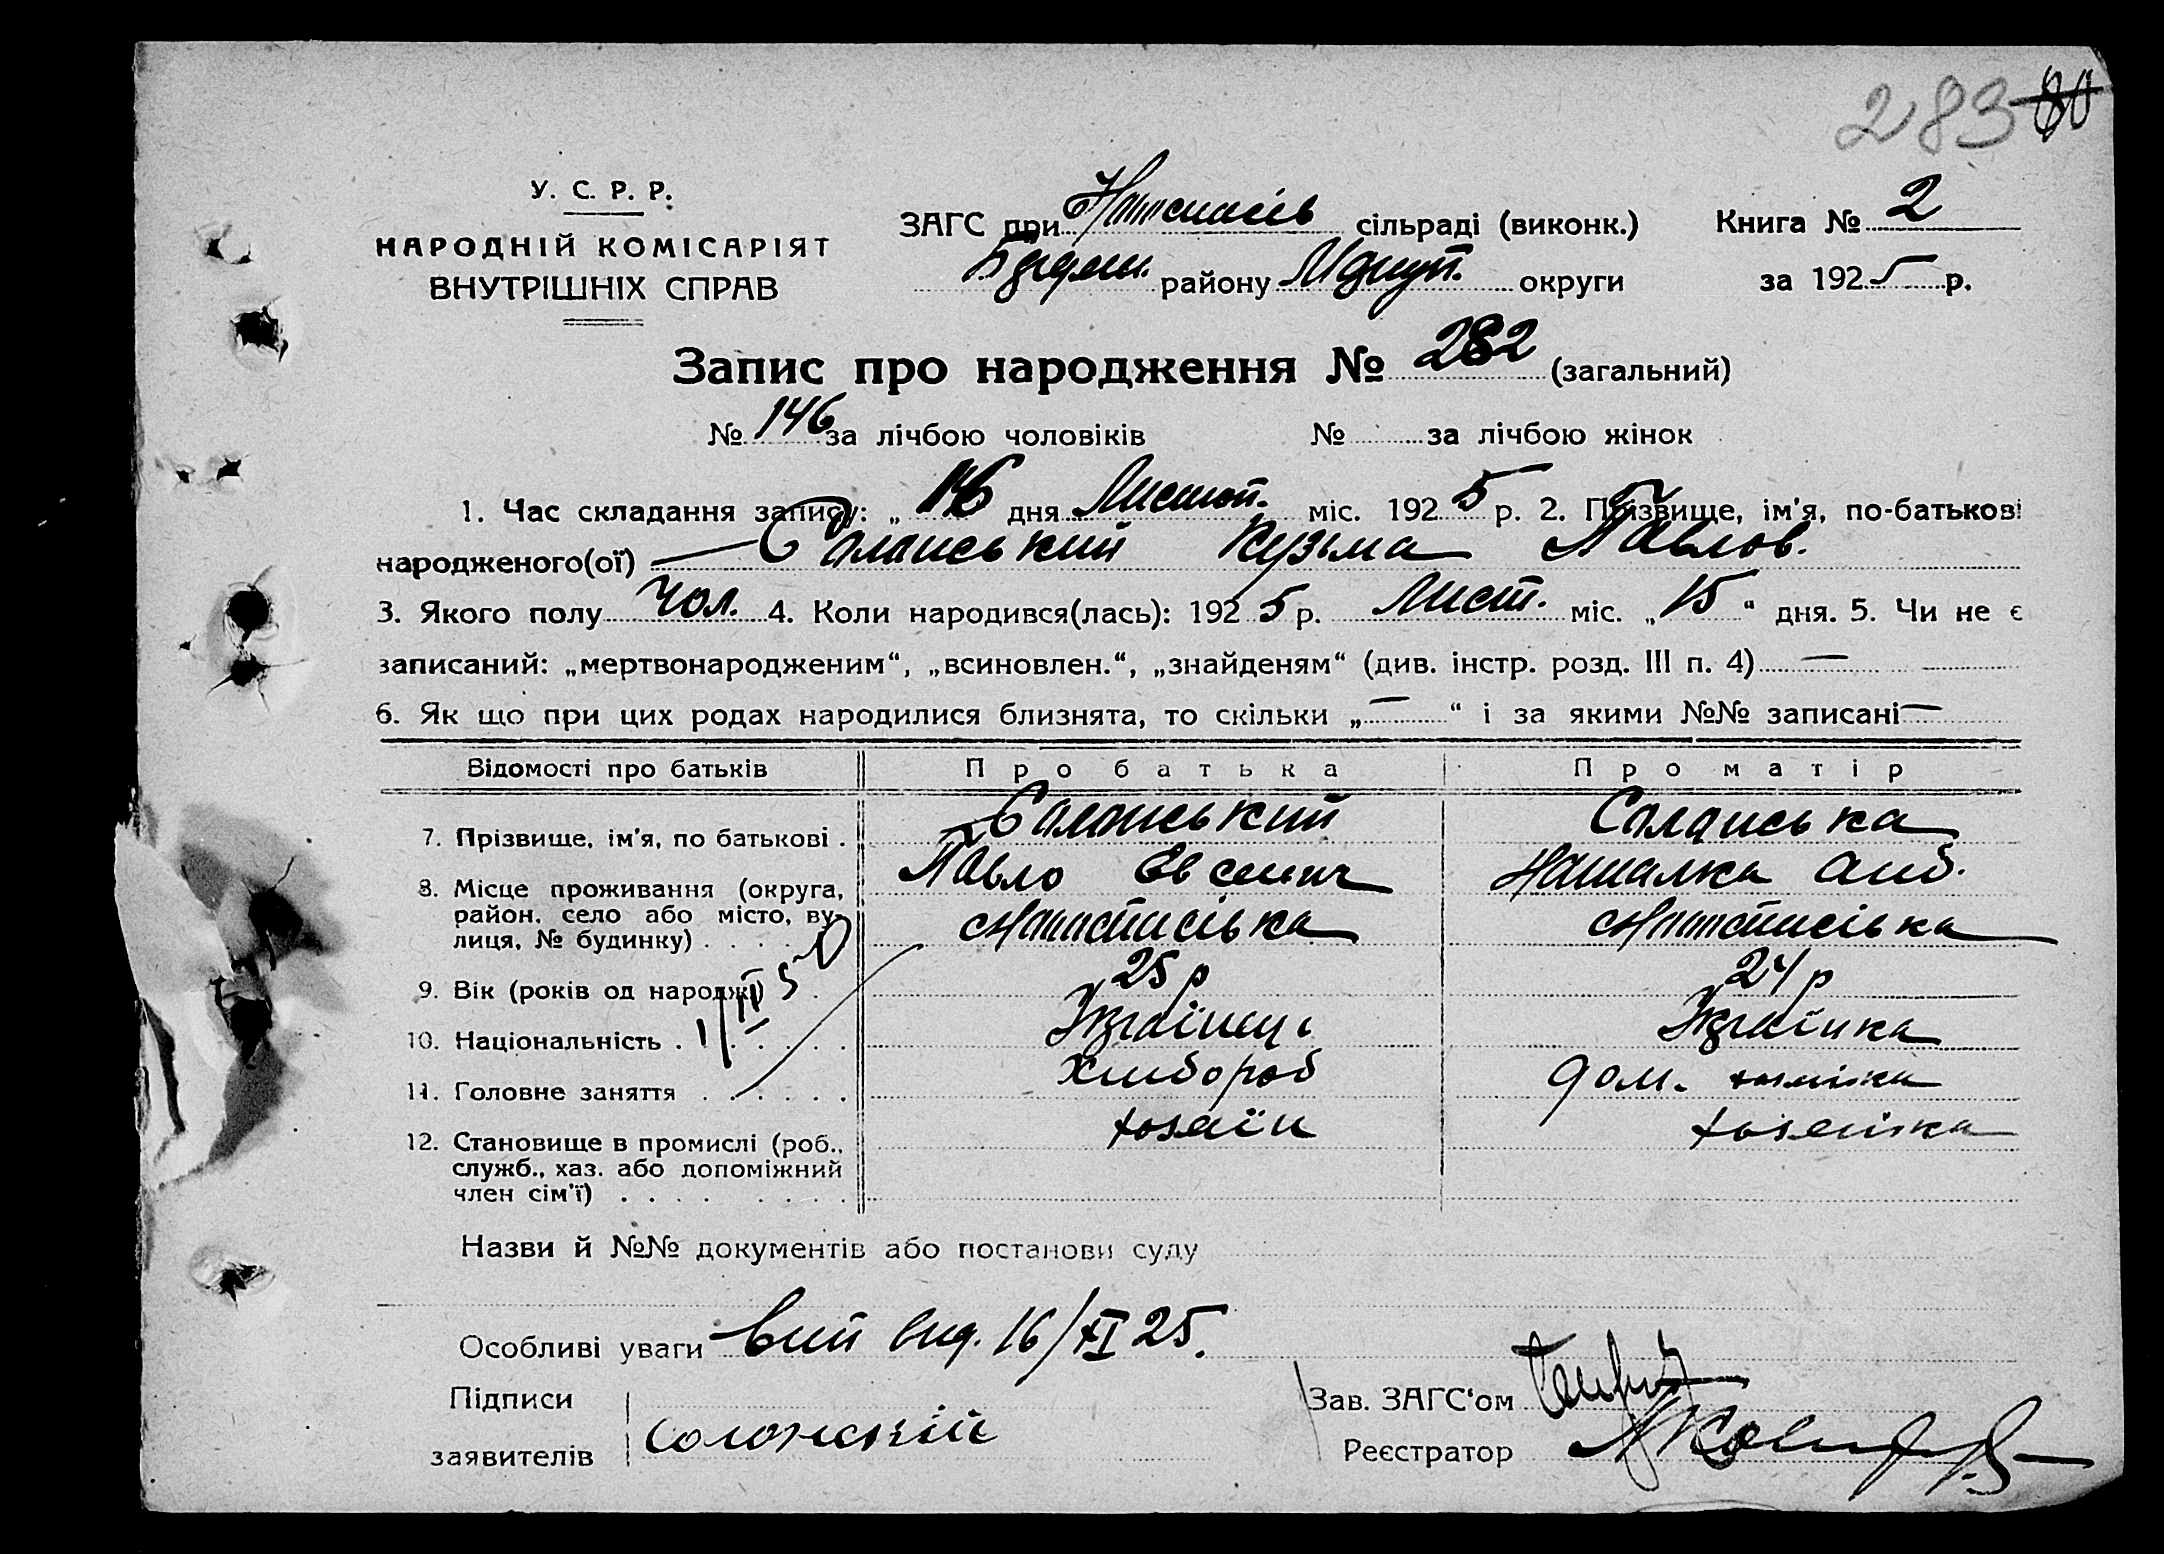 283 80
У. С. Р. Р.
НАРОДНІЙ КОМІСАРІЯТ
ВНУТРІШНІХ СПРАВ
ЗАГС при сільраді (виконк.) Книга № 2
району округи за 1925 р.
Запис про народження № 282 (загальний)
№ 146 за лічбою чоловіків № за лічбою жінок
1. Час складання запису: „ 16 дня Листоп. міс. 1925 р. 2. Прізвище, ім'я, по-батькові
народженого(ої) — Саланський Кузьма Павлов.
3. Якого полу чол. 4. Коли народився(лась): 1925 р. Лист. міс. „ 15 “ дня. 5. Чи не є
записаний: „мертвонародженим“, „всиновлен.“, „знайденям“ (див. інстр. розд. III п. 4) —
6. Як що при цих родах народилися близнята, то скільки „ — “ і за якими №№ записані —
Відомості про батьків Про батька Про матір
7. Прізвище, ім'я, по батькові . Саланський Саланська
Павло Евсеинч Наталка
8. Місце проживання (округа,
район, село або місто, ву-
лиця, № будинку) . . . .
9. Вік (років од народж.) . 25 р 24 р
10. Національність . . . . . . Українець Українка
11. Головне заняття . . . . . . Хлібороб дом.
12. Становище в промислі (роб., хозяїн хозяйка
служб., хаз. або допоміжний
член сім'ї) . . . . . . . .
Назви й №№ документів або постанови суду
Особливі уваги вип вид. 16/XI 25.
Підписи
заявителів Солонскій
Зав. ЗАГС'ом
Реєстратор